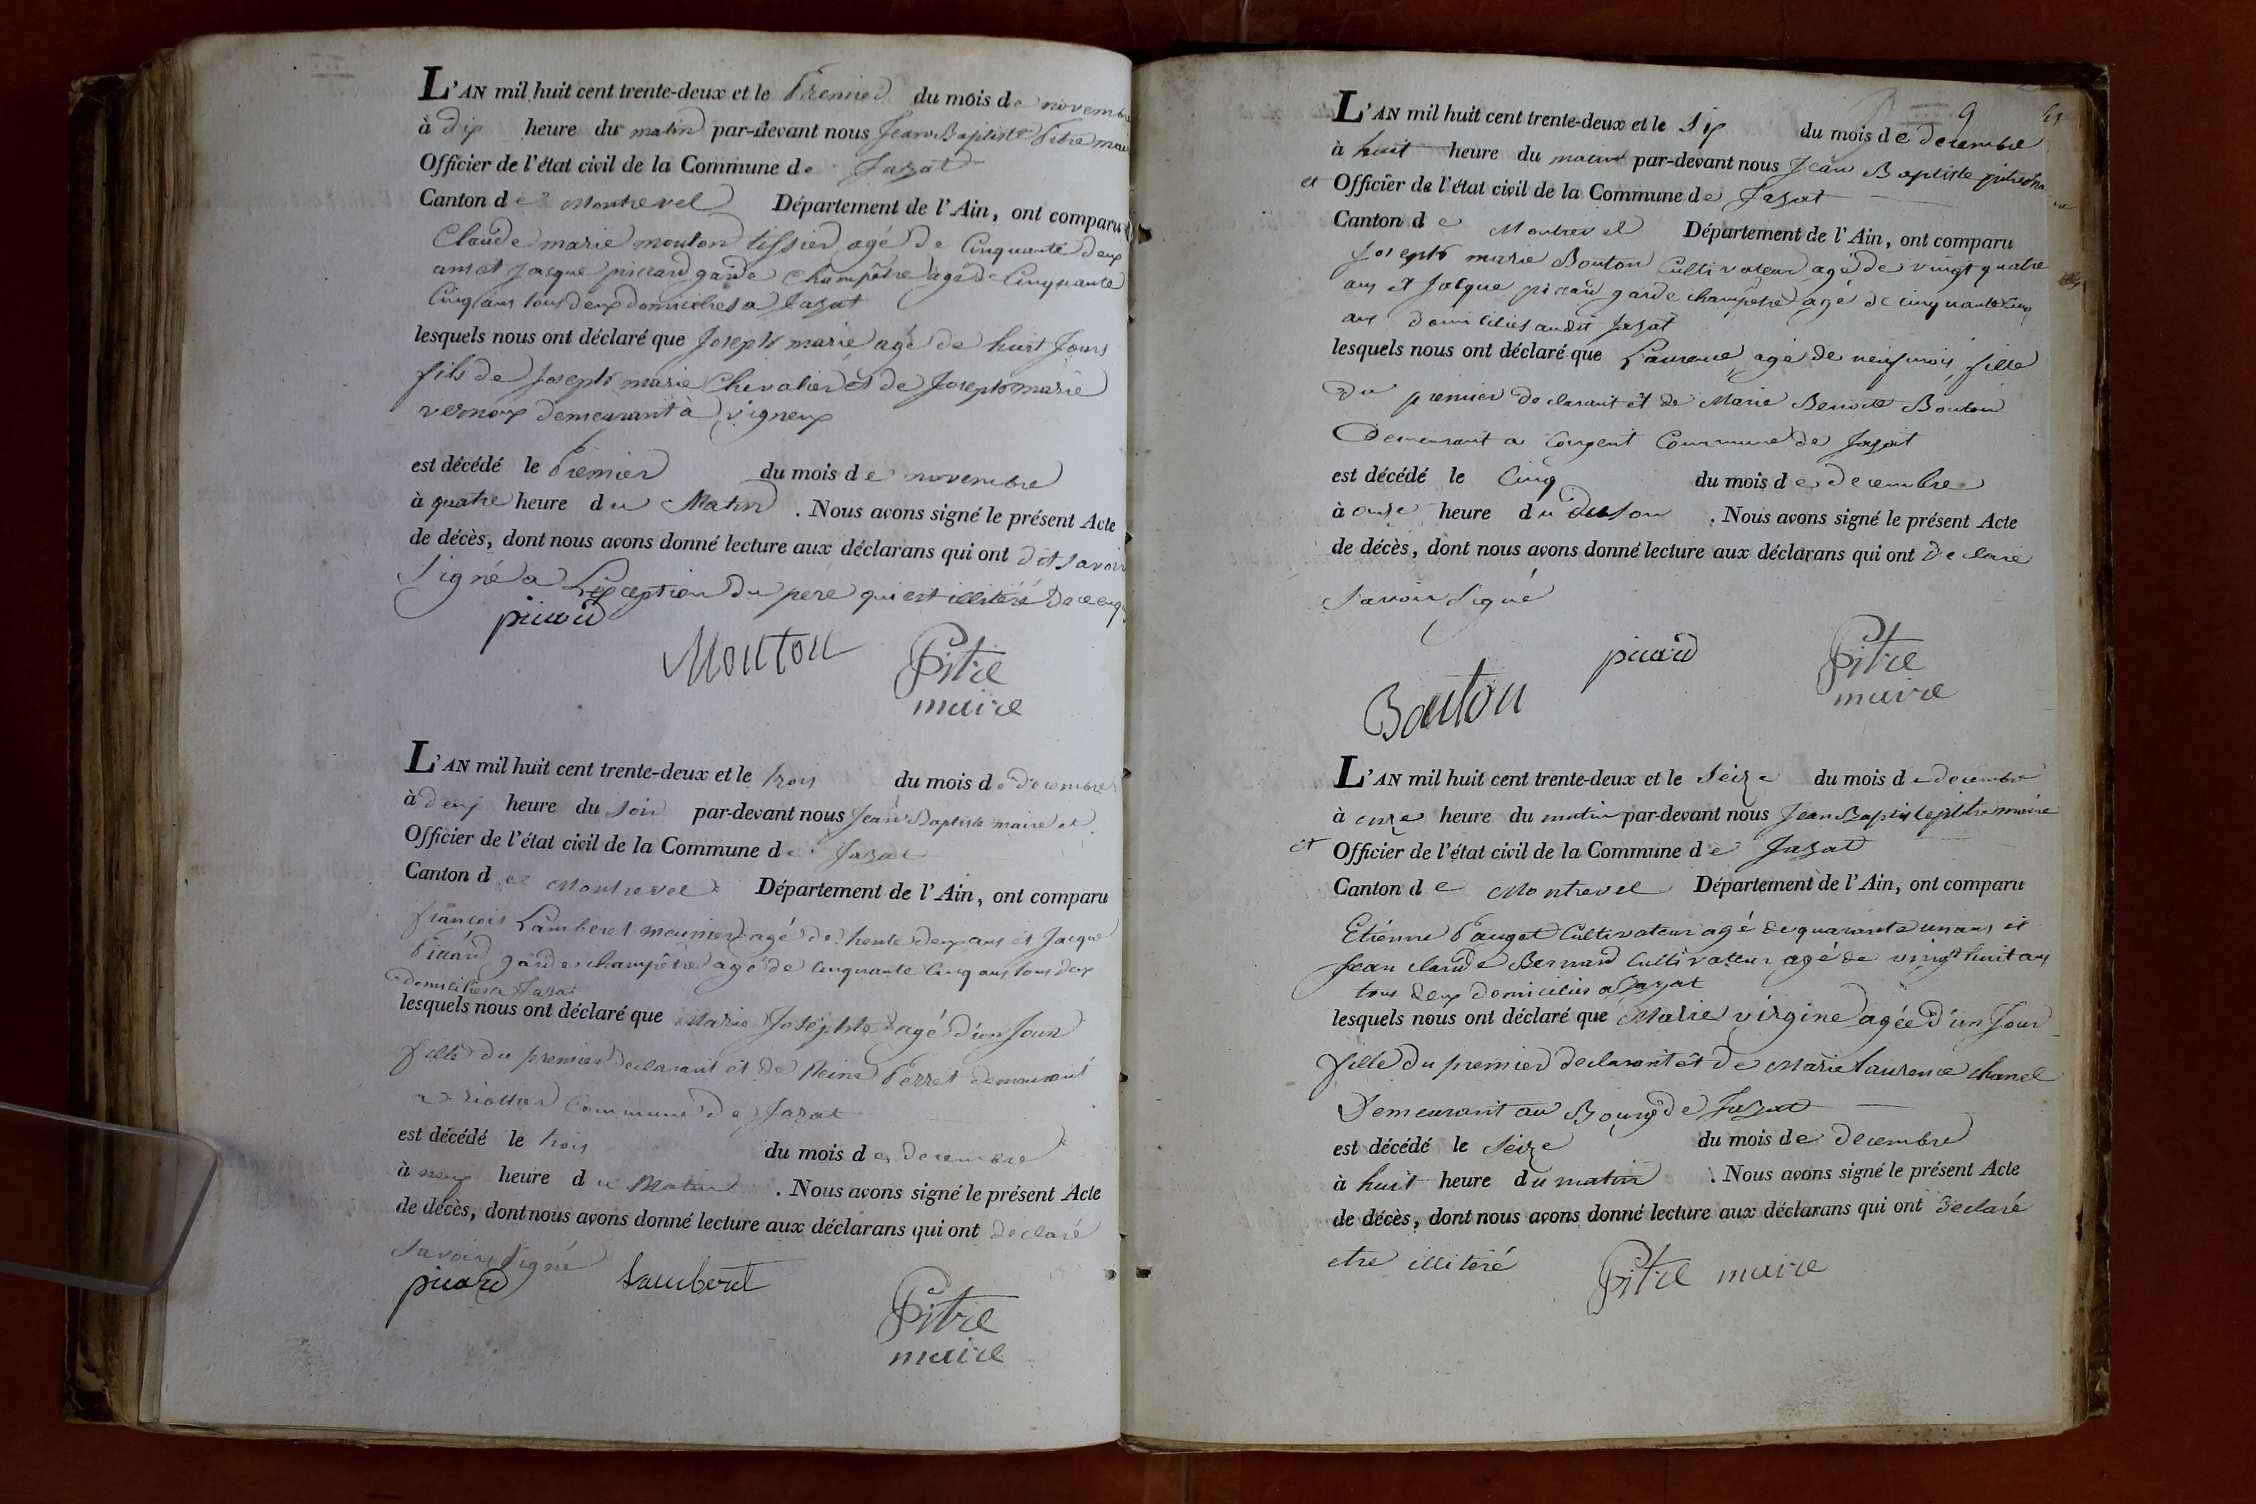 L'AN mil huit cent trente-deux et le Premier du mois de novembre
à dix heure du matin par-devant nous Jean Baptiste Pitre
Officier de l'état civil de la Commune de Jazat
Canton de Montrevel Département de l'Ain, ont comparu
Claude marie mouton tissier agé de Cinquante deux
ans et Jacque piccard garde Champêtre agé de Cinquante
Cinq ans tous deux domiciliés a Jazat
lesquels nous ont déclaré que Joseph marie agé de huit Jours
fils de Joseph marie Chevalier et de Joseph marie
vernoux demeurant à vigneux
est décédé le Premier du mois de novembre
à quatre heure du Matin . Nous avons signé le présent Acte
de décès, dont nous avons donné lecture aux déclarans qui ont dit savoir
Signé a L'exception du pere qui est illitéré de ce enquis
picard
Mouton
Pitre
maire
L'AN mil huit cent trente-deux et le trois du mois de decembre
à deux heure du soir par-devant nous Jean Baptiste maire et
Officier de l'état civil de la Commune de Jazat
Canton de Montrevel Département de l'Ain, ont comparu
françois Lamberet meunier agé de trente deux ans et Jacque
Picard garde champêtre agé de cinquante Cinq ans tous deux
domiciliés a Jazat
lesquels nous ont déclaré que Marie Josephte agé d'un Jour
fille du premier declarant et de Reine Perret demeurant
a riottier Commune de Jazat
est décédé le trois du mois de decembre
à heure du Matin . Nous avons signé le présent Acte
de décès, dont nous avons donné lecture aux déclarans qui ont declaré
Savoir Signé
picard Lamberet
Pitre
maire
9
L'AN mil huit cent trente-deux et le Six du mois de decembre
à huit heure du matin par-devant nous Jean Baptiste pitre
et Officier de l'état civil de la Commune de Jazat
Canton de Montrevel Département de l'Ain, ont comparu
Joseph marie Bouton Cultivateur agé de vingt quatre
ans et Jacque piccard garde champetre agé de cinquante Cinq
ans domiciliés audit Jazat
lesquels nous ont déclaré que Laurence agé de neuf mois fille
du premier declarant et de Marie Benoite Bouton
Demeurant a Congent Commune de Jazat
est décédé le Cinq du mois de decembre
à onze heure du soir . Nous avons signé le présent Acte
de décès, dont nous avons donné lecture aux déclarans qui ont declaré
Savoir Signé
picard
Bouton
Pitre
maire
L'AN mil huit cent trente-deux et le Seize du mois de decembre
à onze heure du matin par-devant nous Jean Baptiste pitre maire
et Officier de l'état civil de la Commune de Jazat
Canton de Montrevel Département de l'Ain, ont comparu
Etienne Pauget Cultivateur agé de quarante un ans et
Jean claude Bernard Cultivateur agé de vingt huit ans
tous deux domiciliés a Jazat
lesquels nous ont déclaré que Marie virgine agée d'un Jour
fille du premier declarant et de Marie Laurence chanel
Demeurant au Bourg de Jazat
est décédé le Seize du mois de decembre
à huit heure du matin . Nous avons signé le présent Acte
de décès, dont nous avons donné lecture aux déclarans qui ont declaré
etre illitéré
Pitre maire